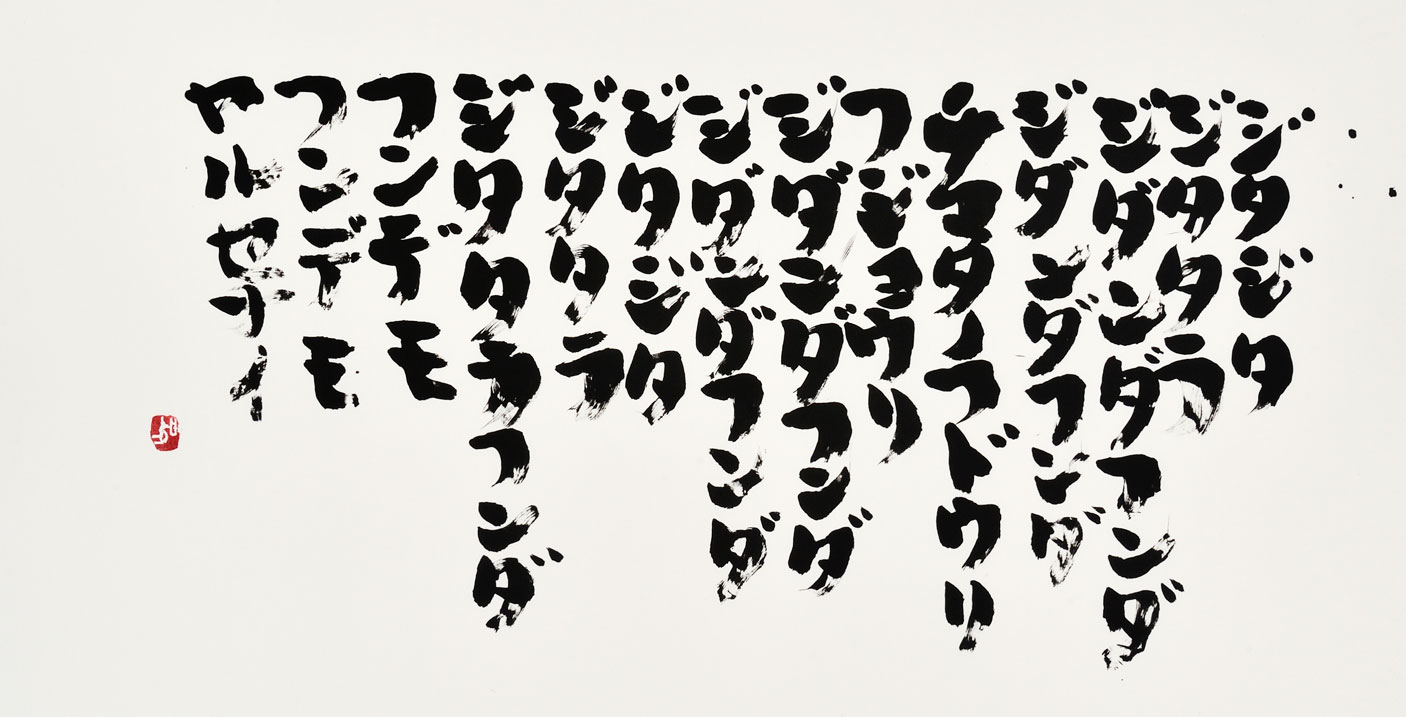 ジタジタ
ジタタラ
ジダンダフンダ
ジダンダフンダ
チヨタータラドウリ
フジヨウリ
ジダンダフンダ
ジダンダフンダ
ジタジタ
ジタタラ
ジタタラフンダ
フンデモ
フンデモ
ヤルセナイ